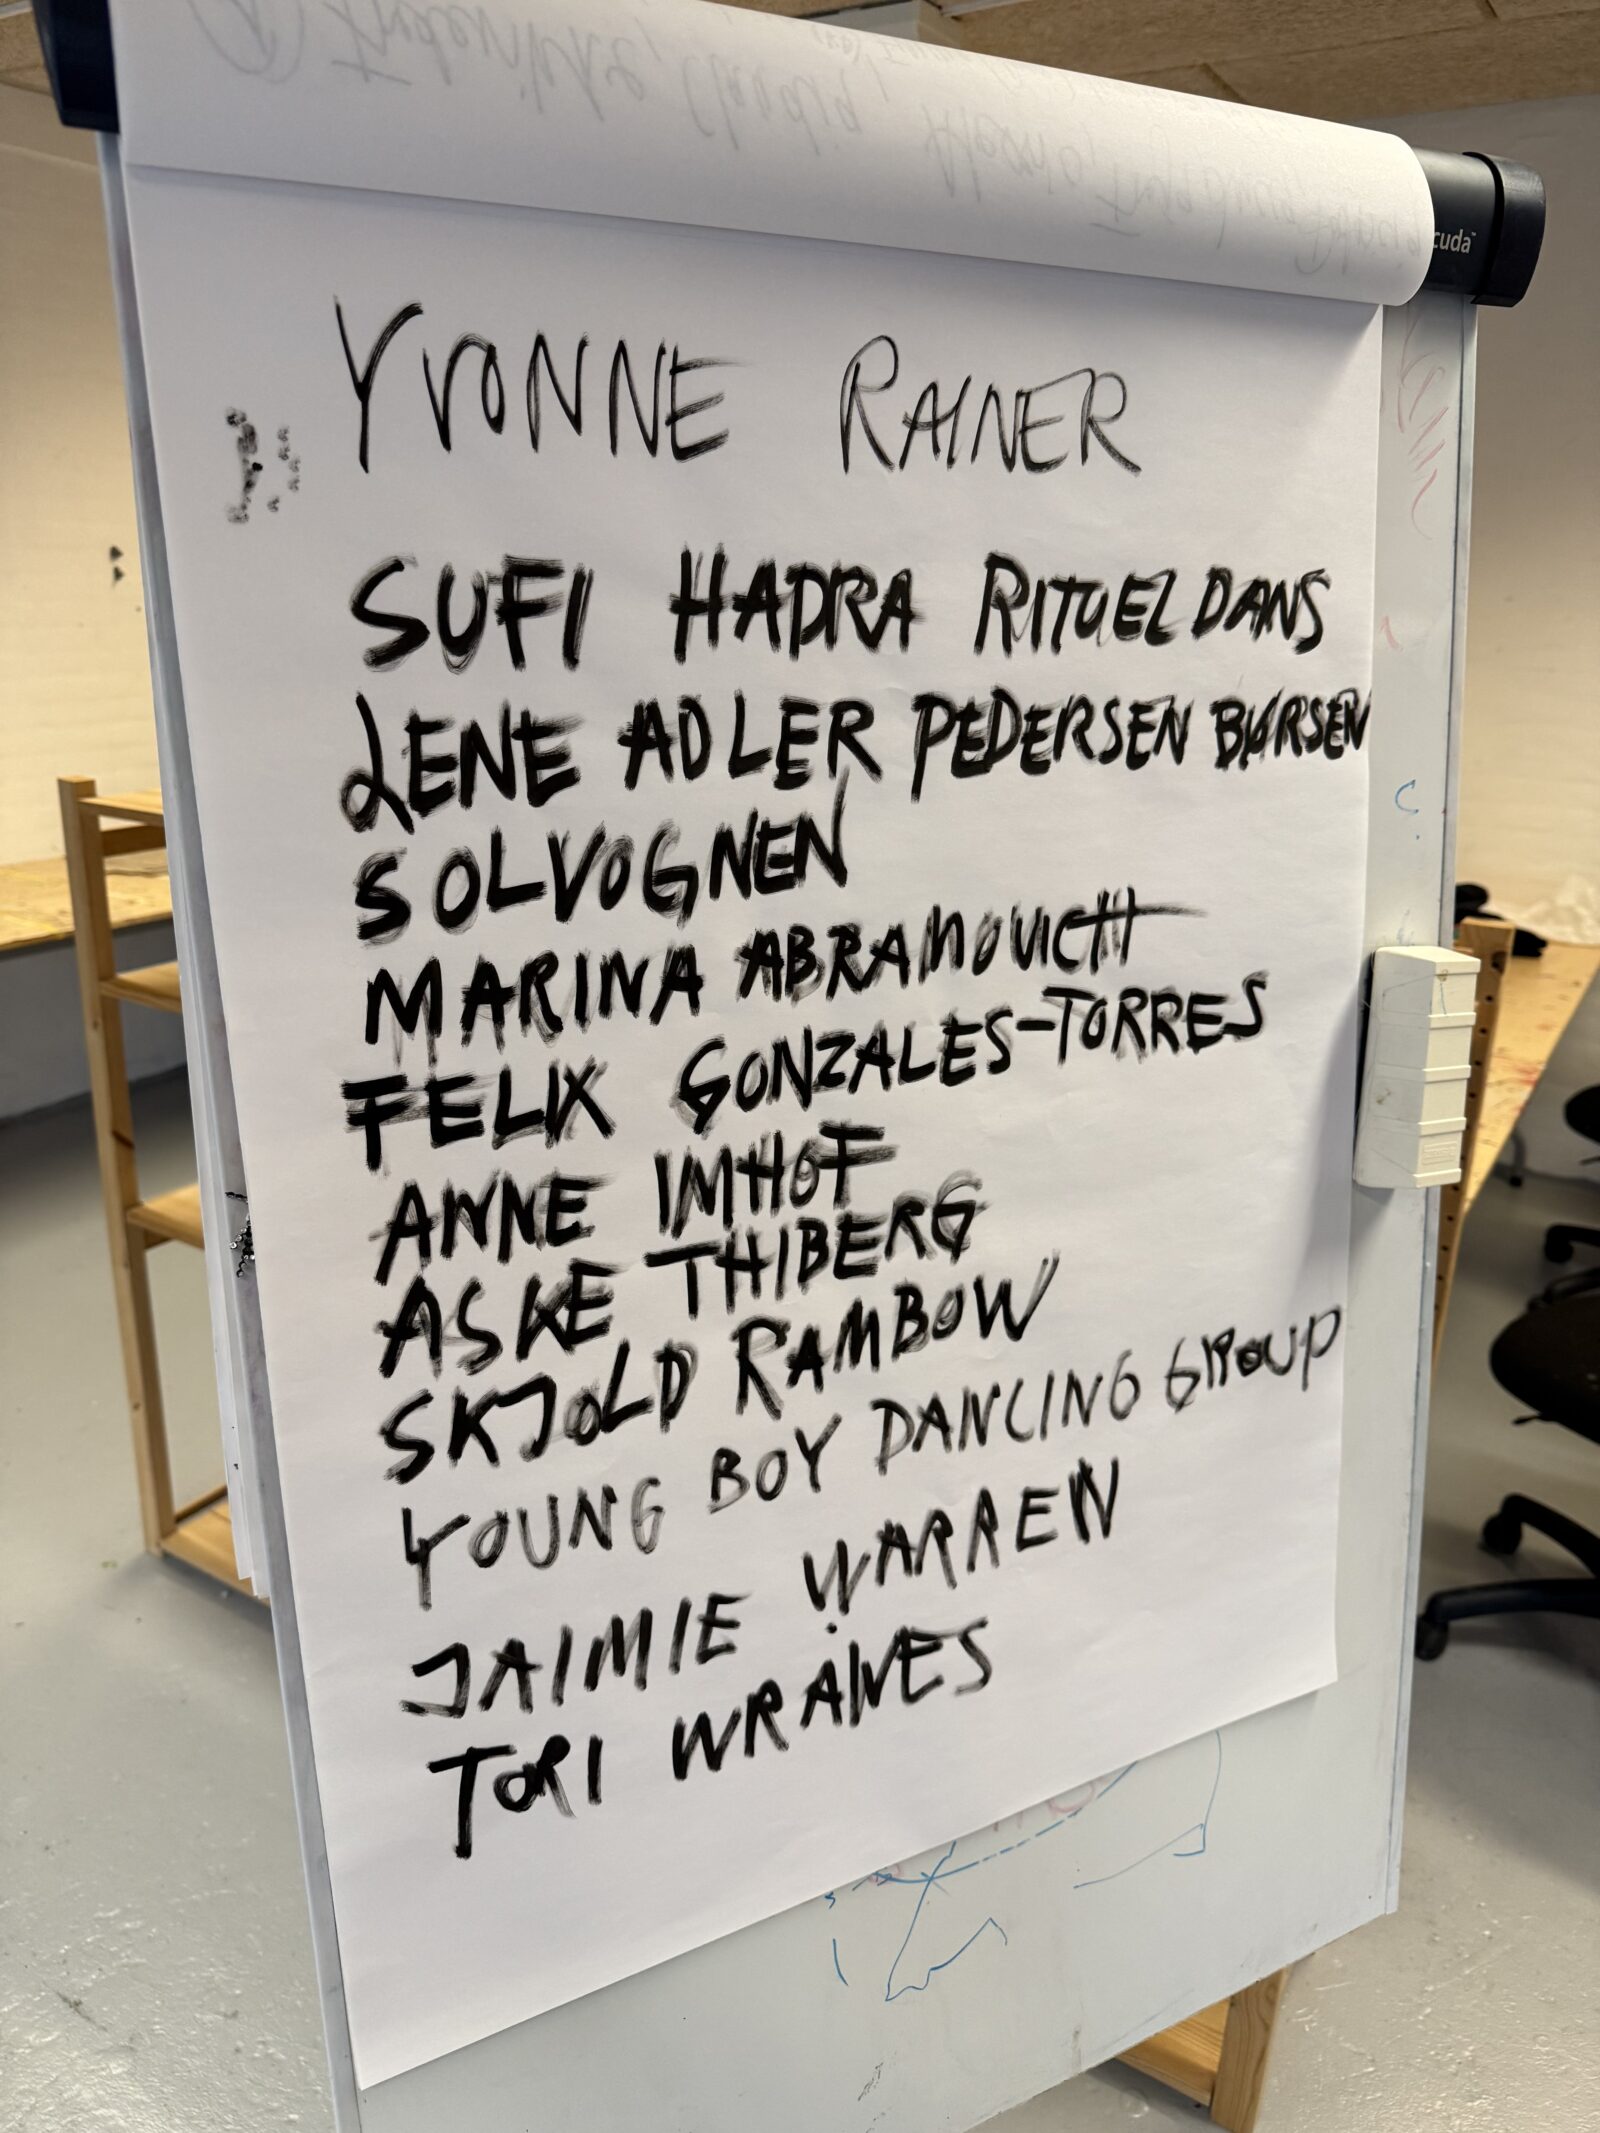 YVONNE RAINER
SUFI HADRA RITUEL DANS
LENE ADLER PEDERSEN BØRSEN
SOLVOGNEN
MARINA ABRAMOVICH
FELIX GONZALES-TORRES
ANNE IMHOF
ASKE THIBERG
SKJOLD RAMBOW
YOUNG BOY DANCING GROUP
JAIMIE WARREN
TORI WRAINES
cuda™